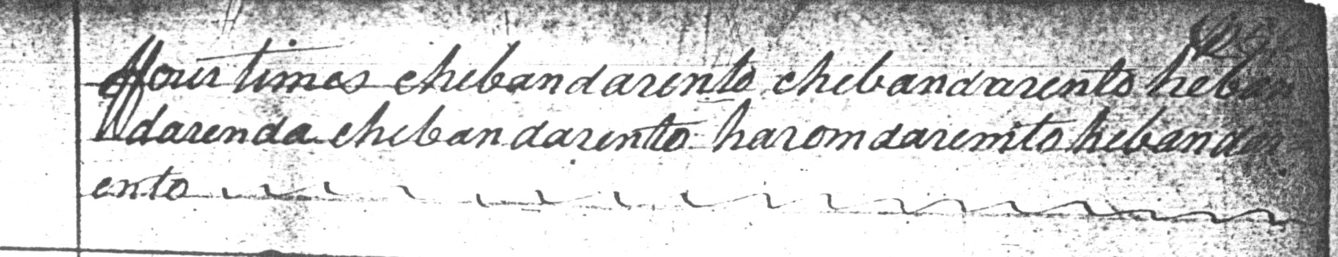 ffour times chebandarento chebandarento heban
darenda chebandarento haromdaremito hebandar
ento